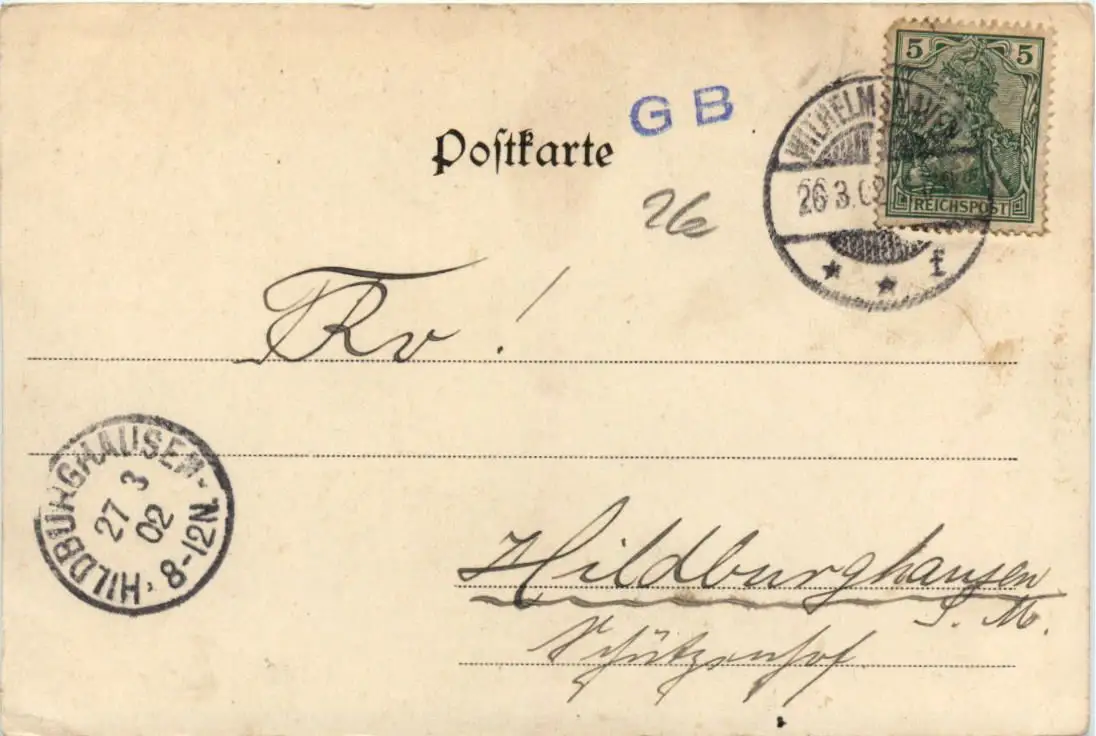 5 5
REICHSPOST
WILHELMSHAVEN
26.3.02
f
GB
Postkarte
26
Rv !
HILDBURGHAUSEN
27 3
02
8-12N.
Hildburghausen
S. M.
Schützenhof